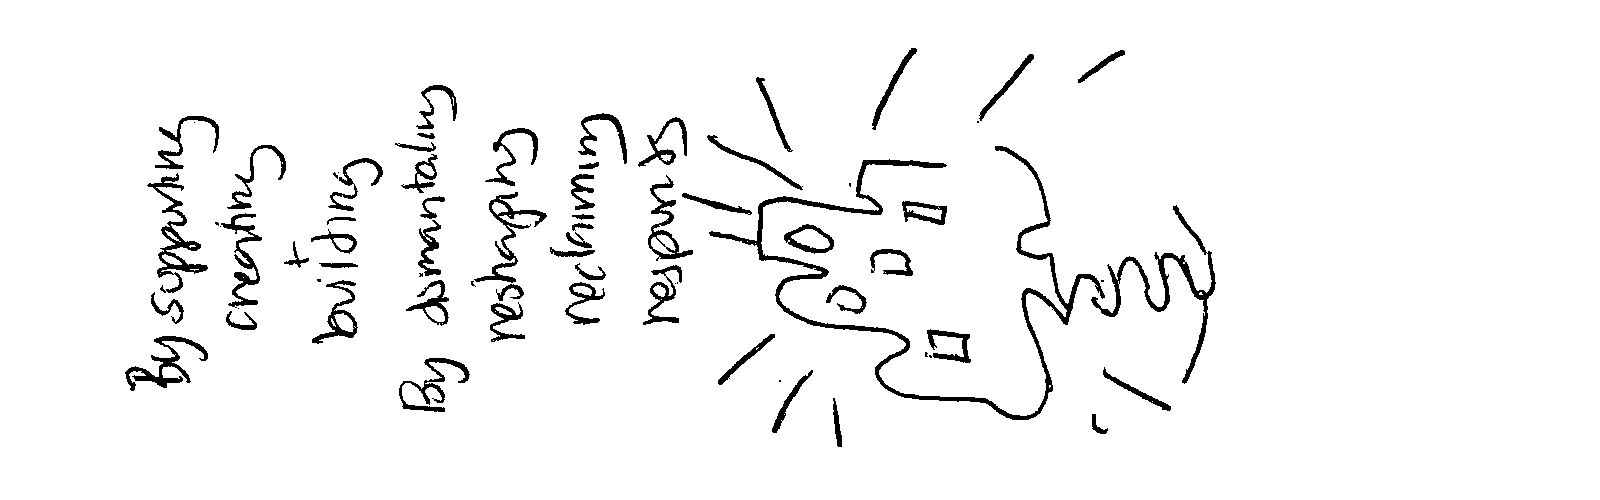 By supporting
creating
+
building
By dismantaling
reshaping
reclaiming